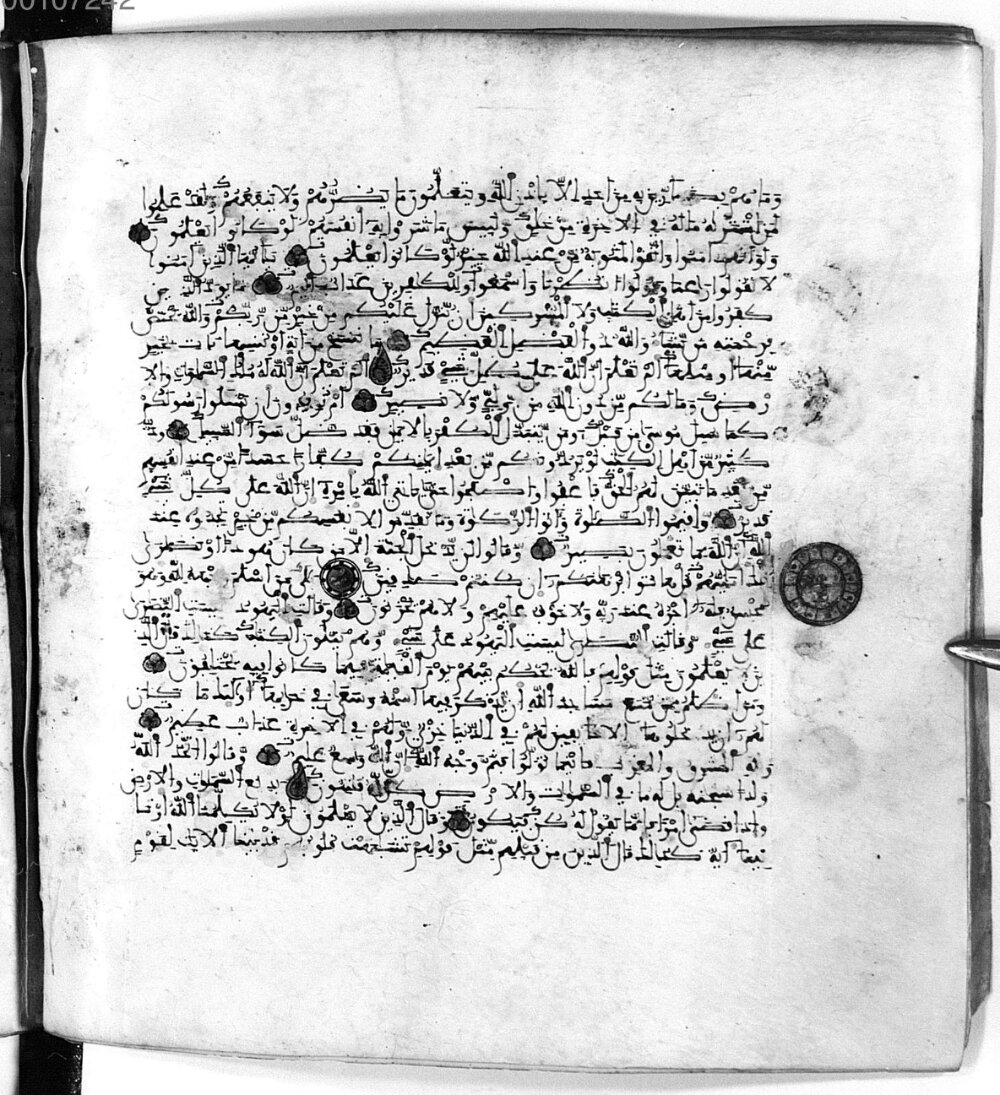 00107242
وما هم بضارين به من احد الا باذن الله ويتعلمون ما يضرهم ولا ينفعهم ولقد علموا
لمن اشتريه ما له في الاخرة من خلق ولبيس ما شروا به انفسهم لو كانوا يعلمون
ولو انهم امنوا واتقوا لمثوبة من عند الله خير لو كانوا يعلمون يايها الذين امنوا
لا تقولوا راعنا وقولوا انظرنا واسمعوا وللكفرين عذاب اليم ما يود الذين
كفروا من اهل الكتب ولا المشركين ان ينزل عليكم من خير من ربكم والله يختص
برحمته من يشاء والله ذو الفضل العظيم ما ننسخ من اية او ننسها نات بخير
منها او مثلها الم تعلم ان الله على كل شيء قدير الم تعلم ان الله له ملك السموت والا
رض وما لكم من دون الله من ولي ولا نصير ام تريدون ان تسئلوا رسولكم
كما سيل موسى من قبل ومن يتبدل الكفر بالايمن فقد ضل سواء السبيل ود
كثير من اهل الكتب لو يردونكم من بعد ايمنكم كفارا حسدا من عند انفسهم
من بعد ما تبين لهم الحق فاعفوا واصفحوا حتى ياتي الله بامره ان الله على كل شيء
قدير واقيموا الصلوة واتوا الزكوة وما تقدموا لانفسكم من خير تجدوه عند
الله ان الله بما تعملون بصير وقالوا لن يدخل الجنة الا من كان هودا او نصرى
تلك امانيهم قل هاتوا برهنكم ان كنتم صدقين بلى من اسلم وجهه لله وهو
محسن فله اجره عند ربه ولا خوف عليهم ولا هم يحزنون وقالت اليهود ليست النصرى
على شيء وقالت النصرى ليست اليهود على شيء وهم يتلون الكتب كذلك قال الذ
ين لا يعلمون مثل قولهم فالله يحكم بينهم يوم القيمة فيما كانوا فيه يختلفون
ومن اظلم ممن منع مساجد الله ان يذكر فيها اسمه وسعى في خرابها اوليك ما كان
لهم ان يدخلوها الا خايفين لهم في الدنيا خزي ولهم في الاخرة عذاب عظيم
ولله المشرق والمغرب فاينما تولوا فثم وجه الله ان الله وسع عليم وقالوا اتخذ الله
ولدا سبحنه بل له ما في السموات والارض كل له قنتون بديع السموت والارض
واذا قضى امرا فانما يقول له كن فيكون وقال الذين لا يعلمون لولا يكلمنا الله او تا
تينا اية كذلك قال الذين من قبلهم مثل قولهم تشبهت قلوبهم قد بينا الايت لقوم